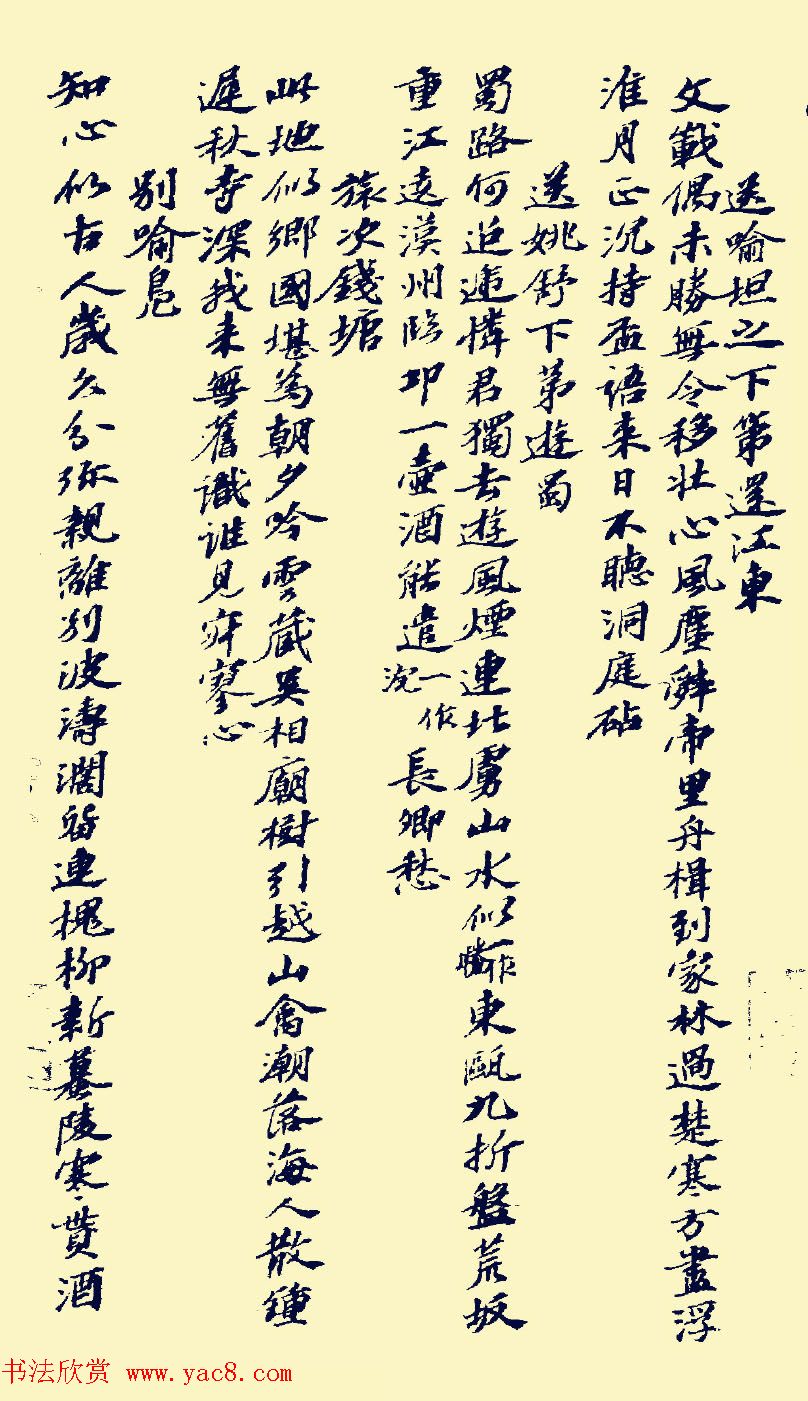 送喻坦之下第還江東
文戰偶未勝無令移壯心風塵辭帝里舟楫到家林過楚寒方盡浮
淮月正沉持盃語來日不聽洞庭砧
送姚舒下第遊蜀
蜀路何迢遞憐君獨去遊風煙連北虜山水似一作東甌九折盤荒坂
重江遶漢州臨邛一壺酒能遣一作沉長卿愁
旅次錢塘
此地似鄉國堪為朝夕吟雲藏吳相廟樹引越山禽潮落海人散鐘
遲秋寺深我來無舊識誰見寂寥心
別喻鳧
知心似古人歲久分彌親離別波濤闊留連槐柳新蟇陵寒貰酒
书法欣赏 www.yac8.com